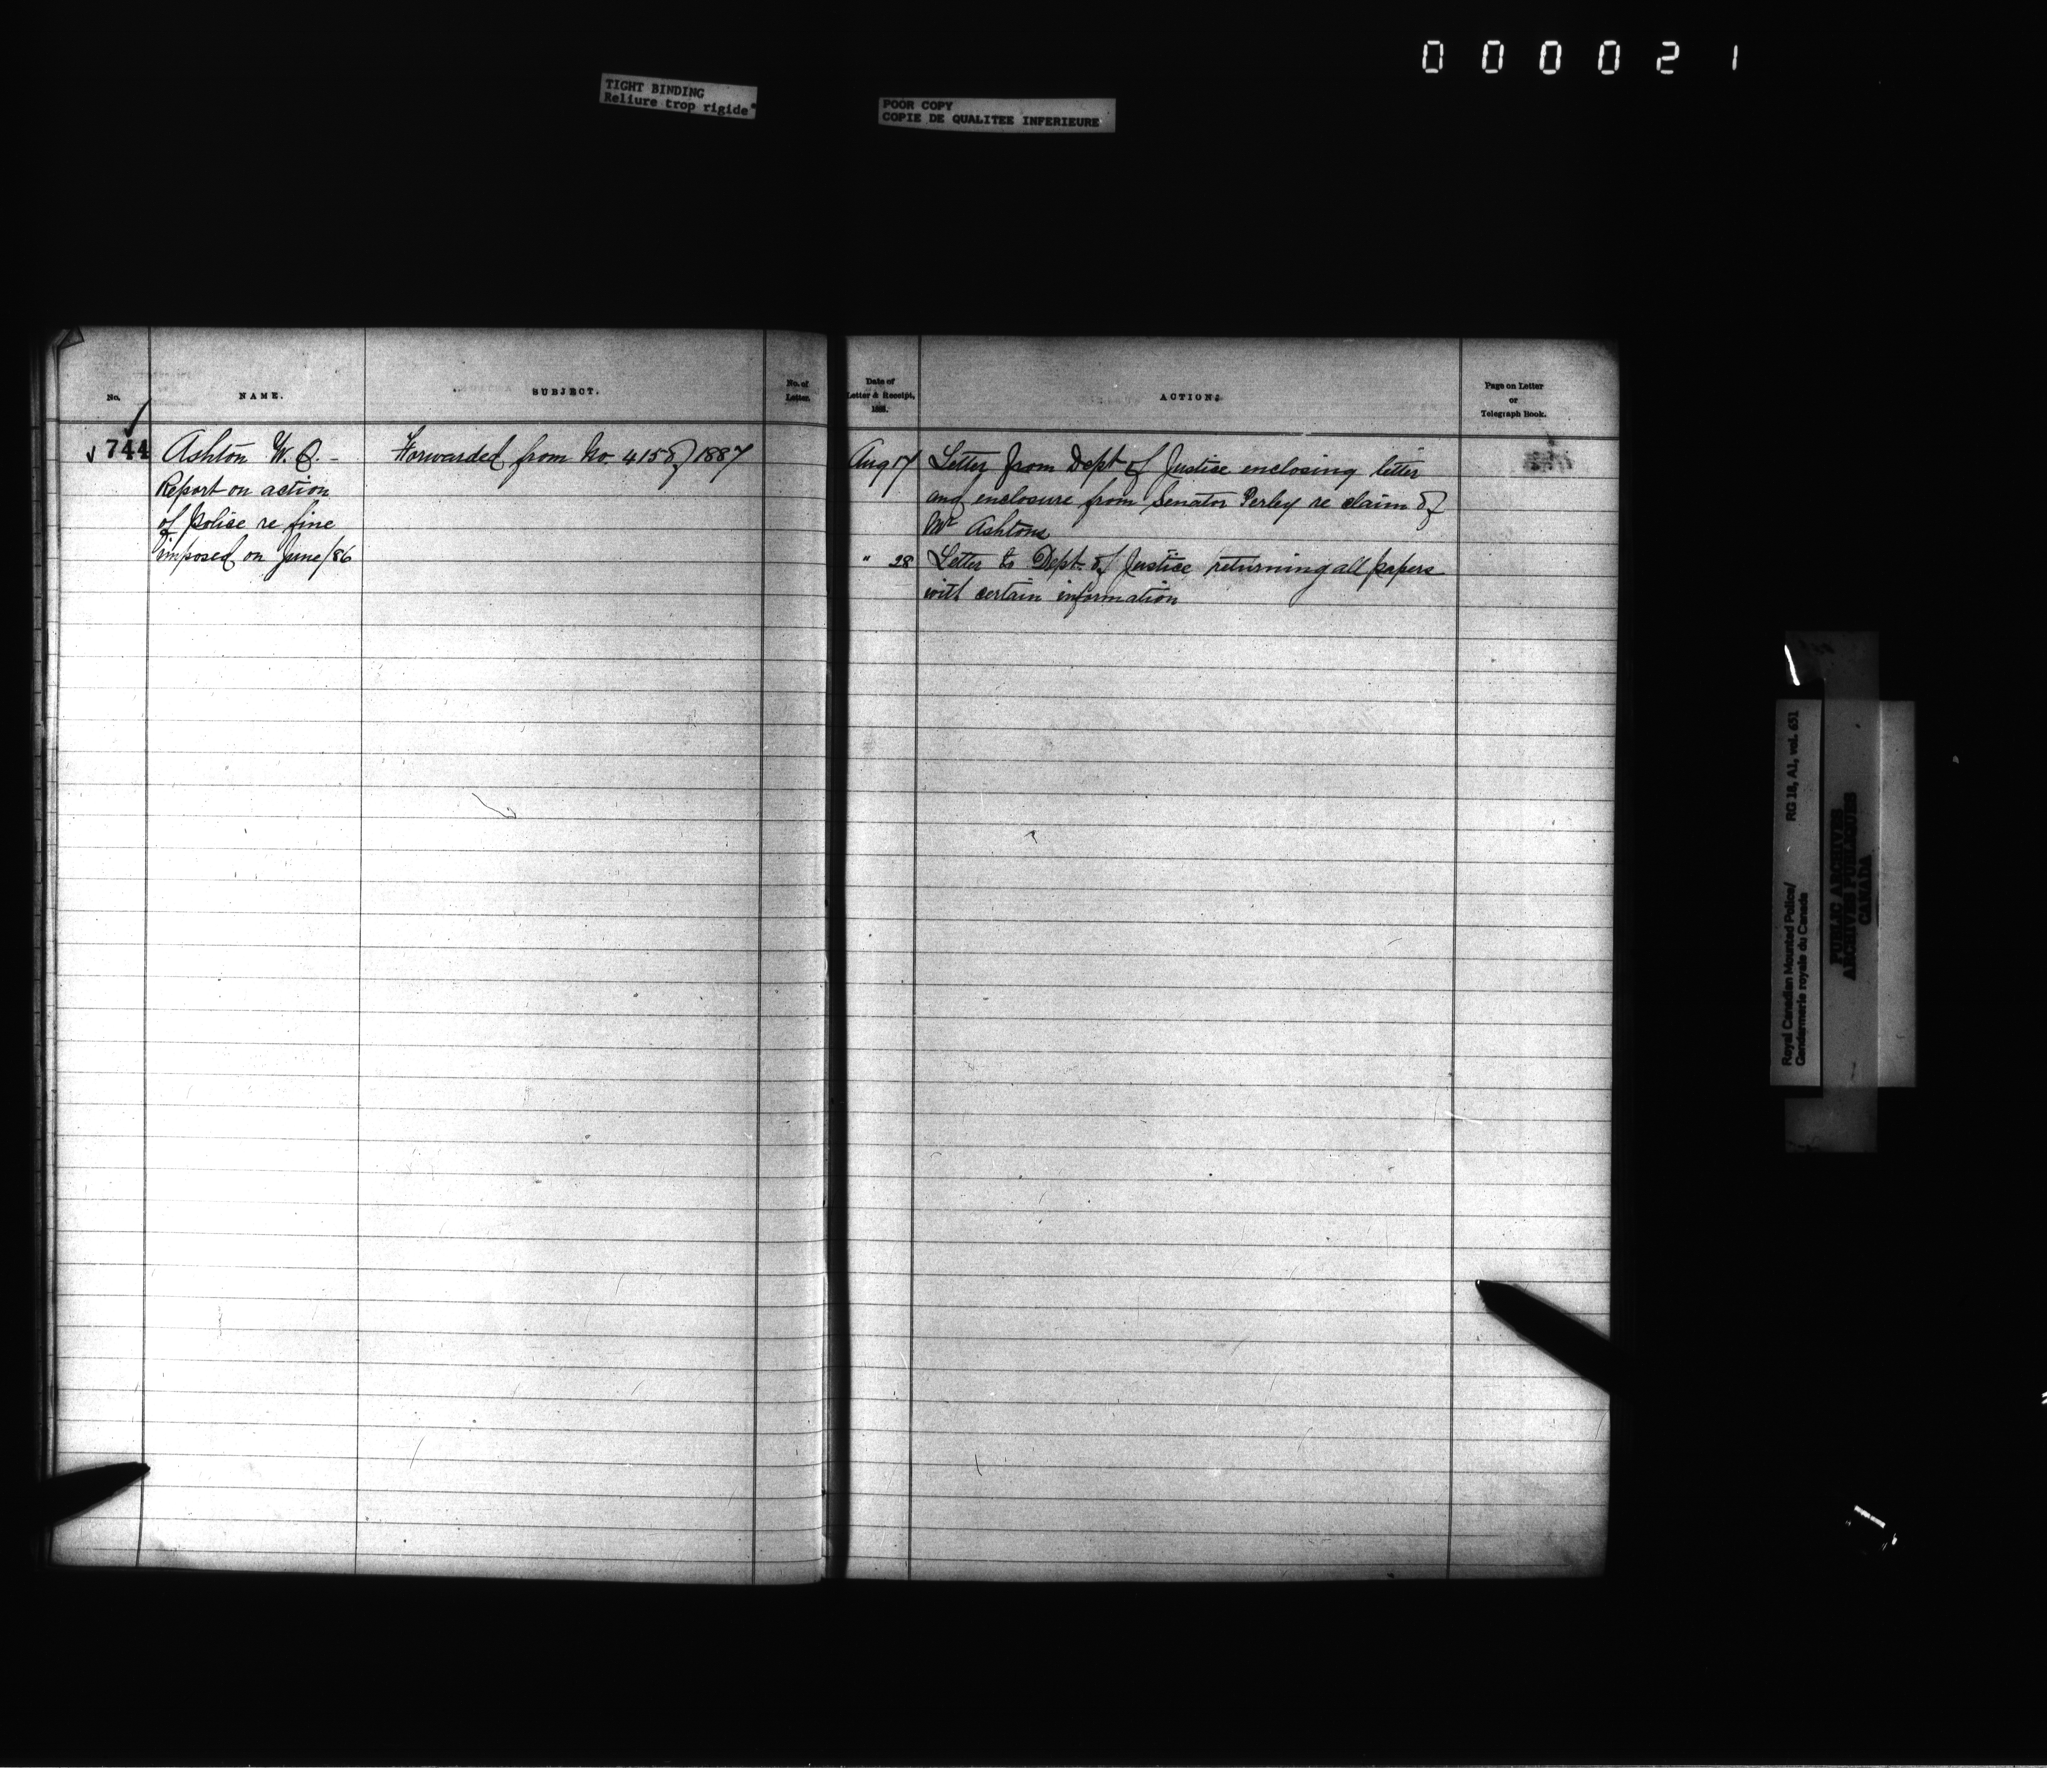 000021
TIGHT BINDING
Reliure trop rigide
POOR COPY
COPIE DE QUALITEE INFERIEURE
No.
NAME.
SUBJECT.
No. of
Letter.
744
Ashton W.
Report on action
of Police re fine
imposed on June/86
Forwarded from No. 415 of 1887
Date of
Letter & Receipt,
188 .
ACTION:
Page on Letter
or
Telegraph Book.
Aug 17 Letter from Dept of Justice enclosing letter
and enclosure from Senator Perley re claim of
Mr Ashtons
" 28 Letter to Dept. of Justice returning all papers
with certain information
Royal Canadian Mounted Police/
Gendarmerie royale du Canada
RG 18, A1, vol. 651
PUBLIC ARCHIVES
ARCHIVES PUBLIQUES
CANADA